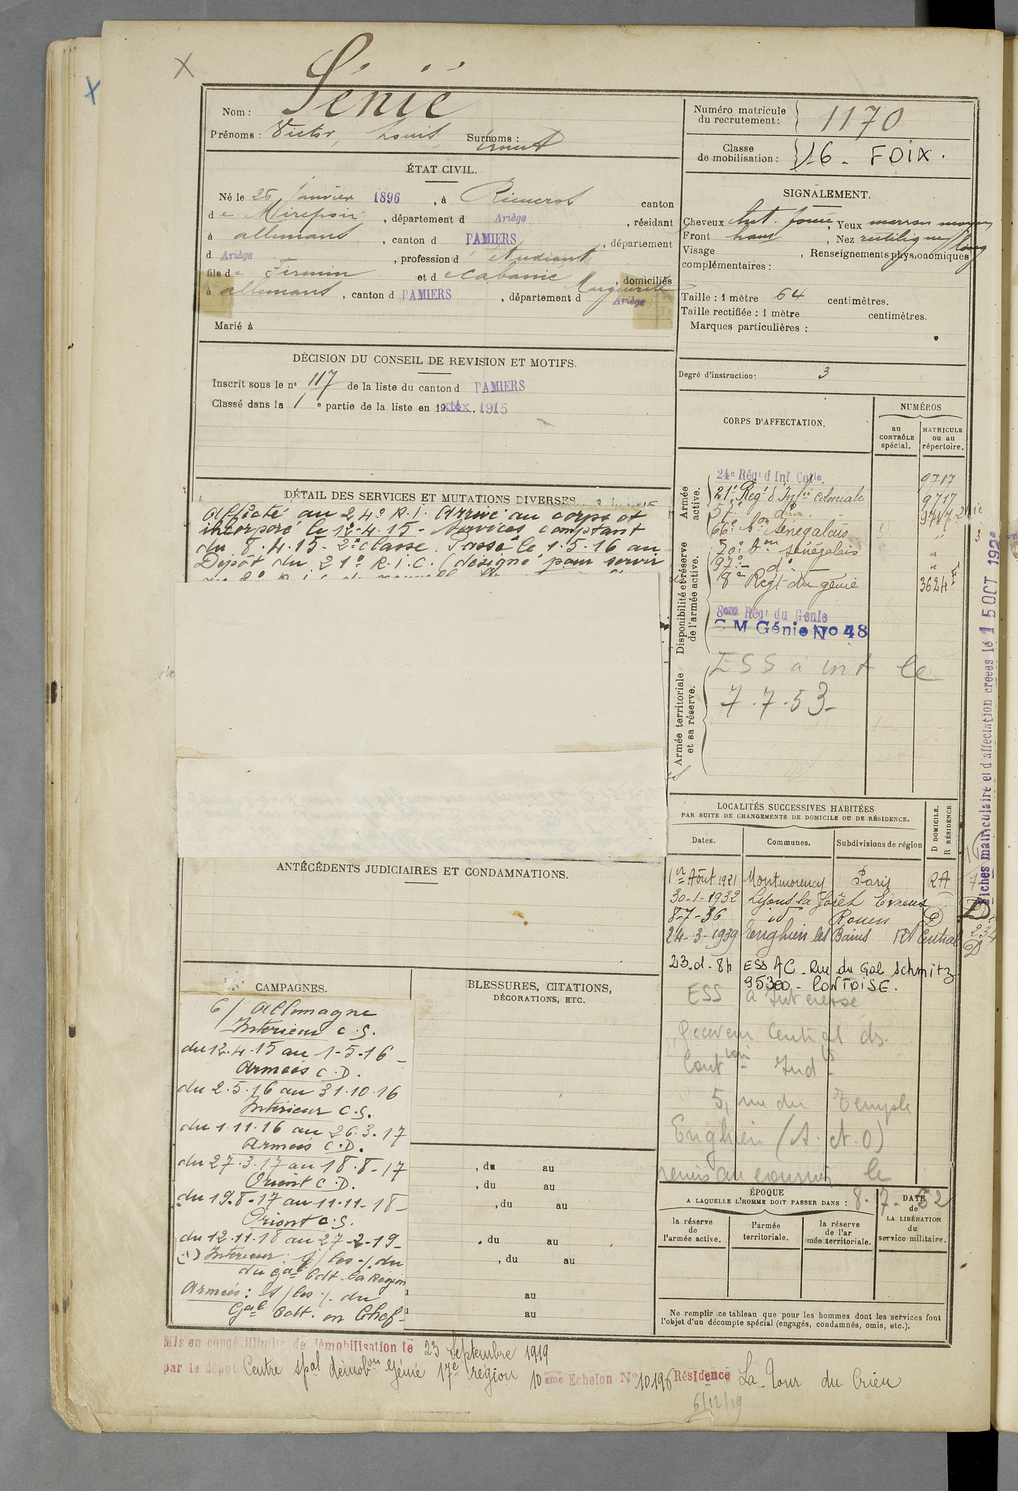 X
X
Nom : Sénié
Prénoms : Victor, Louis, Surnoms : Ernest
Numéro matricule du recrutement : 1170
Classe de mobilisation : 16 - FOIX.
ÉTAT CIVIL.
Né le 26 Janvier 1896, à canton
de Mirepoix, département d Ariège, résidant
à allemans, canton d PAMIERS, département
d Ariège, profession d'étudiant
fils de Firmin et de Cabanié Marguerite, domiciliés
à allemans, canton d PAMIERS, département d Ariège
Marié à
SIGNALEMENT.
Cheveux chat. foncé, Yeux marron moyen
Front haut, Nez rectiligne long
Visage , Renseignements physionomiques
complémentaires :
Taille : 1 mètre 64 centimètres.
Taille rectifiée : 1 mètre centimètres.
Marques particulières :
Degré d'instruction : 3
DÉCISION DU CONSEIL DE REVISION ET MOTIFS.
Inscrit sous le n° 117 de la liste du canton d PAMIERS
Classé dans la 1e partie de la liste en 19 1915
DÉTAIL DES SERVICES ET MUTATIONS DIVERSES.
Affecté au 24e R.I. Arrivé au corps et
incorporé le 12-4-15 - Services comptant
du 8.4.15 - 2e classe. Passé le 1.5.16 au
Dépôt du 21e R.I.C. (désigné pour servir
CORPS D'AFFECTATION.
NUMÉROS
au CONTRÔLE spécial.
MATRICULE ou au répertoire.
Armée active.
24e Rég' d'Inf. Colle 9717
21e Reg' d'Infie coloniale 9717
do 9747
66e Bon Sénégalais "
70e Bon Sénégalais "
97e - do "
Disponibilité et réserve de l'armée active.
8e Regt du génie 3624
8ème Rég' du Génie
C M Génie No 48
Armée territoriale et sa réserve.
ESS à int le
7.7.53-
Fiches matriculaire et d'affectation créées le 15 OCT 192
LOCALITÉS SUCCESSIVES HABITÉES
PAR SUITE DE CHANGEMENTS DE DOMICILE OU DE RÉSIDENCE.
Dates. Communes. Subdivisions de région D DOMICILE. R RÉSIDENCE
1er Août 1921 Montmorency Paris RA
30-1-1932 Lyons la forêt Evreux
8-7-36 id Rouen D
24-3-1939 Enghien les Bains Central
23.d.8h ESS AC - Rue du Gal Schmitz
95300 - PONTOISE.
ESS à Intéressé
Receveur Central des
Contions Indes
5, rue du Temple
Enghien (S. et O)
remis au courrier le
8-7-52
ANTÉCÉDENTS JUDICIAIRES ET CONDAMNATIONS.
CAMPAGNES.
C/ Allemagne
Intérieur C.S.
du 12.4.15 au 1-5-16 -
Armées C.D.
du 2.5.16 au 31.10.16
Intérieur C.S.
du 1.11.16 au 26.3.17
Armées C.D.
du 27.3.17 au 18.8-17
Orient C.D.
du 19.8.17 au 11-11-18-
Orient C.S.
du 12.11.18 au 27-2-19-
Armées :
Gal Cdt. en Chef-
BLESSURES, CITATIONS,
DÉCORATIONS, ETC.
, du au
, du au
, du au
, du au
, du au
au
au
ÉPOQUE
A LAQUELLE L'HOMME DOIT PASSER DANS :
la réserve de l'armée active.
l'armée territoriale.
la réserve de l'armée territoriale.
DATE de LA LIBÉRATION du service militaire.
Ne remplir ce tableau que pour les hommes dont les services font
l'objet d'un décompte spécial (engagés, condamnés, omis, etc.).
Mis en congé illimité de démobilisation le 23 Septembre 1919
par le dépôt Centre spal démobon Génie 17e région 10ème Echelon No 10196 Résidence La Tour du Crieu
6/12/19